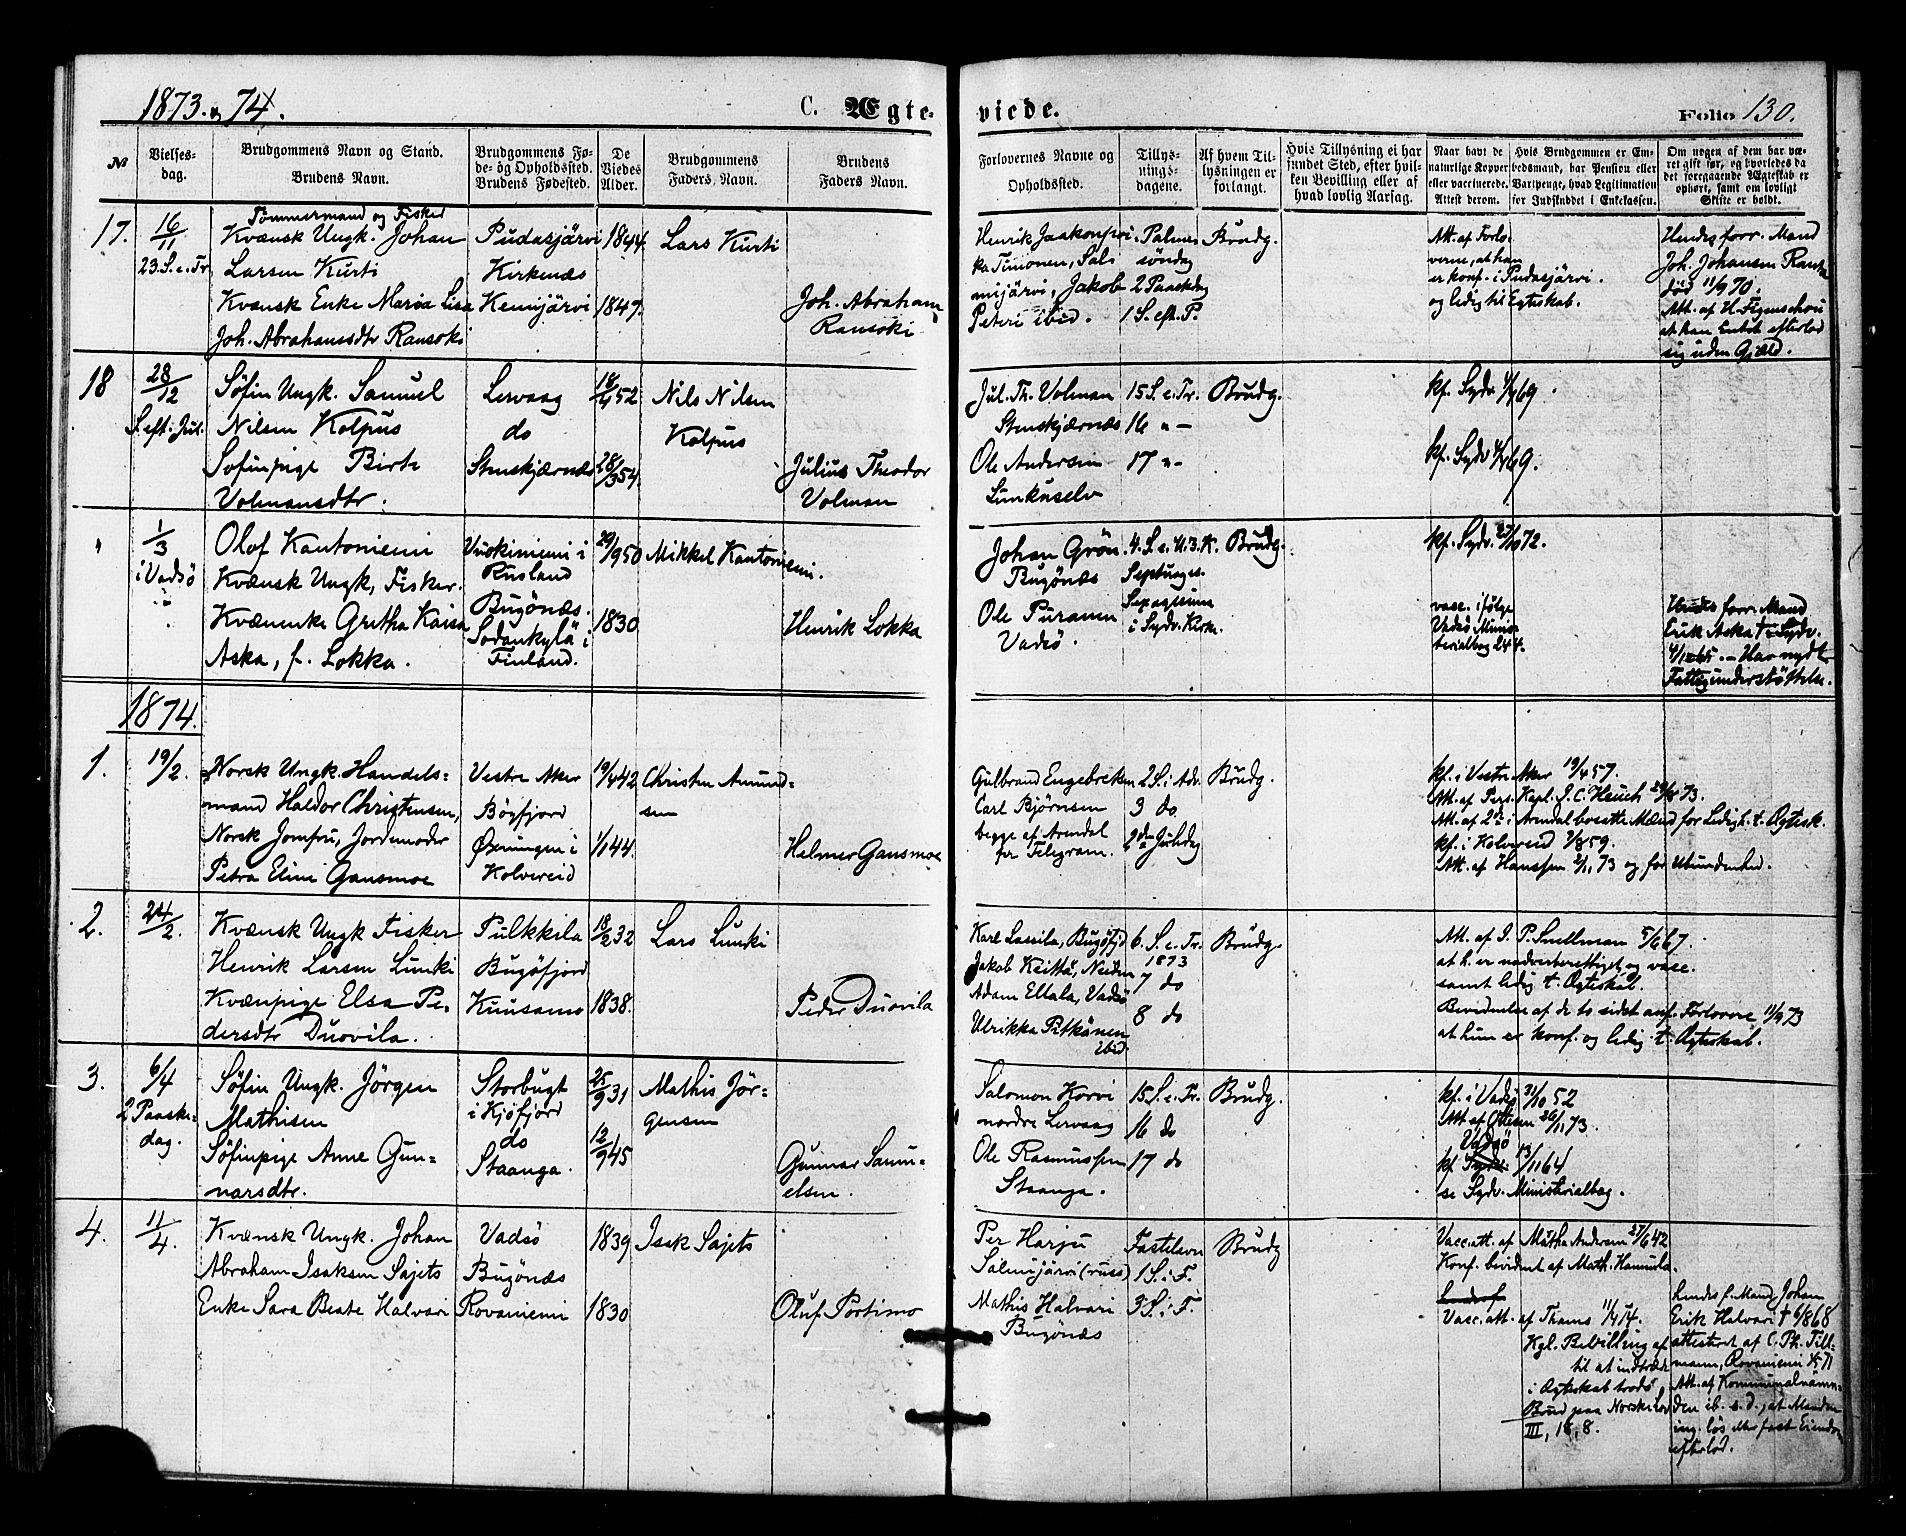 1873. & 74.
C. Ægte-
viede.
Folio 130.
№
Vielses-
dag.
Brudgommens Navn og Stand.
Brudens Navn.
Brudgommens Fø-
de- og Opholdssted.
Brudens Fødested.
De
Viedes
Alder.
Brudgommens
Faders Navn.
Brudens
Faders Navn.
Forlovernes Navne og
Opholdssted.
Tillys-
nings-
dagene.
Af hvem Til-
lysningen er
forlangt.
Hvis Tillysning ei har
fundet Sted, efter hvil-
ken Bevilling eller af
hvad lovlig Aarsag.
Naar havt de
naturlige Kopper
eller vaccinerede.
Attest derom.
Hvis Brudgommen er Em-
bedsmand, har Pension eller
Vartpenge, hvad Legitimation
for Indskuddet i Enkekassen.
Om nogen af dem har væ-
ret gift før, og hvorledes da
det foregaaende Ægteskab er
ophørt, samt om lovligt
Skifte er holdt.
17.
16/11
23. S. e. Tr
Tømmermand og Fisker
Kvænsk Ungk. Johan
Larsen Kurti
Kvænsk Enke Maria Lisa
Joh. Abrahamsdtr Ransoki
Pudasjärvi
Kirkenæs
Kemijärvi
1844.
1847.
Lars Kurti
Joh. Abraham
Ransoki
Henrik
ka Timonen, Sal
mijärvi, Jakob
Peteri ibid.
Palme
søndag
2 Paaskdag
1 S. eft. P.
Brudg.
Att. af Forlo-
verne, at han
er konf. i Pudasjärvi.
og ledig til Egteskab.
Hendes forr. Mand
Joh. Johansen
død 11/9 70.
Att. af H. Figenschou
at han Intet efterlod
sig uden Gjæld.
18
28/12
S. eft. Jul.
Søfin Ungk. Samuel
Nilsen Kolpus
Sofinpige Birte
Volmansdtr.
Lervaag
do
Stenskjærnæs
52
28/3 54.
Nils Nilsen
Kolpus
Julius Theodor
Volman
Jul. Th. Volman
Stenskjærnæs
Ole Andersen
Lunkuselv
15 S. e. Tr.
16 " -
17 " -
Brudg.
kf. Sydv. 69.
kf. Sydv. 69.
"
1/3
i Vadsö
Olof Kantoniemi
Kvænsk Ungk, Fisker.
Kvænenke Gretha Kaisa
Aska, f. Lokka.
Vuokiniemi i
Rusland
Bugönæs.
Sodankylä i
Finland.
29/9 50
1830
Mikkel Kantoniemi.
Henrik Lokka
Johan Grön
Bugönæs
Ole Puranen
Vadsö.
4. S. e. H. 3. K.
Septuages.
Sexagesima
i Sydv. Kirke.
Brudg.
kf. Sydv. 27/10 72.
vacc. ifølge
Vadsö Minis-
terialbog 244.
Hendes forr. Mand
Erik Aska † i Sydv.
65. - Har nydt
Fattigunderstøttelse.
1874.
1.
19/2.
Norsk Ungk. Handels-
mand Haldor Christensen,
Norsk Jomfru, Jordemoder
Petra Elini Gansmoe
Vestre Aker
Bögfjord
Øxningen i
Kolvereid
19/4 42
1/1 44.
Christen Amund-
sen
Helmer Gansmoe
Gulbrand Engebretsen
Carl Björnsen
begge af Arendal
per Telegram.
2 S. i Adv.
3 do
2den Juledag
Brudg.
kf. i Vestre Aker 19/4 57.
Att. af Pers. Kapl. J. C. Heuch 73.
Att. af 2de i Arendal bosatte Mænd for Ledigh. t. Ægtesk.
kf. i Kolvereid 59.
Att. af Hanssen 2/11 73 og for Ubundenhed.
2.
24/2.
Kvænsk Ungk Fisker
Henrik Larsen Lunki
Kvænpige Elsa Pe-
dersdtr Duovila.
Pulkkila
Bugöfjord
Kuusamo
18/2 32
1838.
Lars Lunki
Peder Duovila
Karl Lassila, Bugöfjd
Jakob Keittä, Neiden
Adam Ellala, Vadsö
Ulrikka Pitkänen
ibid.
6. S. e. Tr.
1873
7 do
8 do
Brudg.
Att. af J. P. Snellman 5/6 67.
at h. er nadverberettiget og vacc.
samt ledig t. Ægteskab.
Bevidnelse af de to sidst anf. Forlovere 11/9 73
at hun er konf. og ledig t. Ægteskab.
3.
6/4
2 Paaske-
dag.
Søfin Ungk. Jörgen
Mathisen
Søfinpige Anne Gun-
narsdtr.
Storbugt
i Kjöfjord
do
Staanga.
25/9 31
12/9 45
Mathis Jör-
gensen
Gunnar Samu-
elsen.
Salomon Korvi
nordre Lervaag
Ole Rasmussen
Staanga.
15 S. e. Tr.
16 do
17 do
Brudg.
kf. i Vadsö 31/10 52
Att. af Olesen 26/11 73.
Vadsö
kf. Sydv. 13/11 64
se Sydv. Ministerialbog.
4.
11/4.
Kvænsk Ungk. Johan
Abraham Isaksen Sajets
Enke Sara Beate Halvari
Vadsö
Bugönæs
Rovaniemi
1839
1830
Isak Sajets
Oluf Portimo
Per Harju
Salmijärvi (russ)
Mathis Halvari
Bugönæs
Fastelavn
1 S. i F.
3 S. i F.
Brudg
Vacc. att. af Mätha Andersen 27/6 42
Konf. bevidnet af Math. Hannula.
Vacc. att. af Thams 11/4 74.
Kgl. Bevilling af
til at indtræde
i Ægteskab trods
Brud paa Norske Lov
III, 18, 8.
hendes f. Mand, Johan
Erik Halvari † 6/8 68
attesteret af C. Ph. Till-
mann, Rovaniemi 71
Att. af Kommunalnämn-
den ib. s. d., at Manden
ing. løs eller fast Eiendom
efterlod.